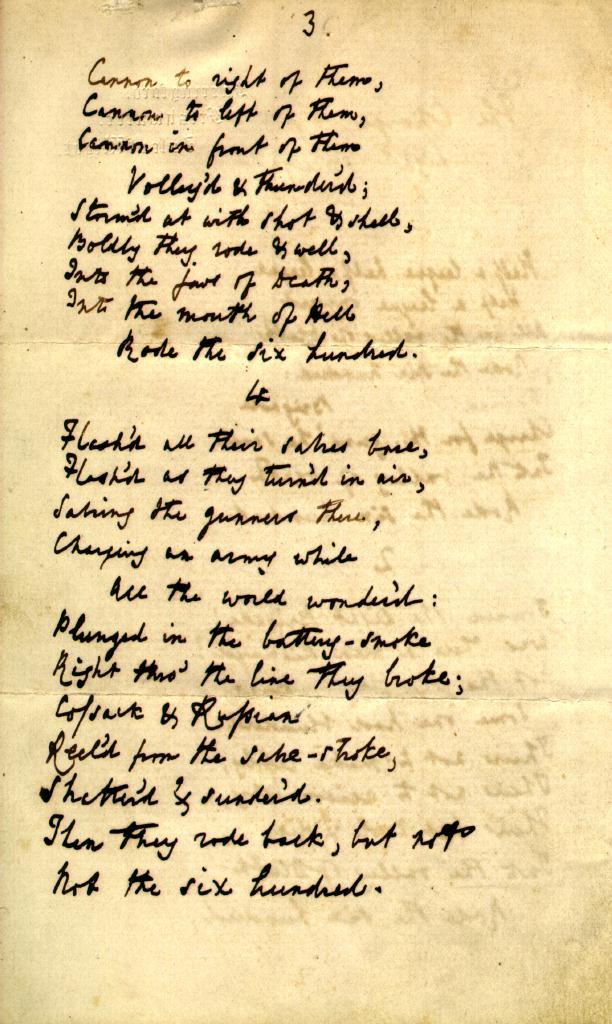 3.
Cannon to right of them,
Cannon to left of them,
Cannon in front of them
Volley'd & thunder'd;
Storm'd at with shot & shell,
Boldly they rode & well,
Into the jaws of Death,
Into the mouth of Hell
Rode the six hundred.
4
Flash'd all their sabres bare,
Flash'd as they turn'd in air,
Sabring the gunners there,
Charging an army while
All the world wonder'd:
Plunged in the battery-smoke
Right thro' the line they broke;
Cossack & Russian
Reel'd from the sabre-stroke,
Shatter'd & sunder'd.
Then they rode back, but not
Not the six hundred.